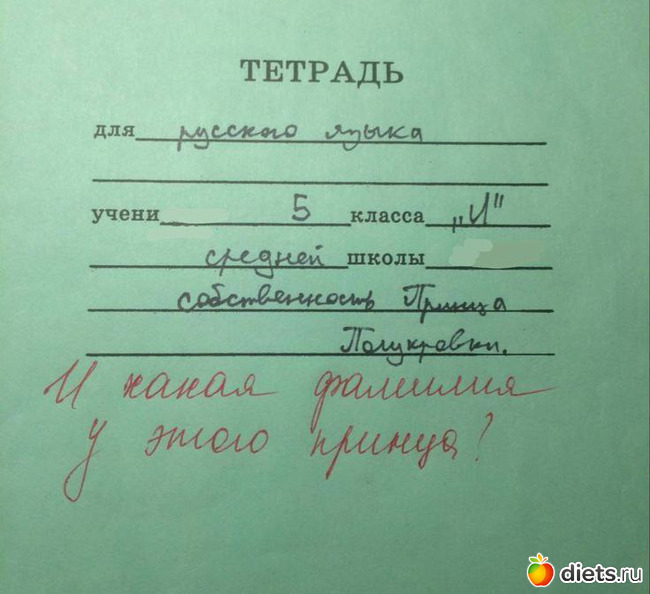 ТЕТРАДЬ
для русского языка
учени 5 класса „И"
средней школы
собственность Принца
Полукровки.
И какая фамилия
у этого принца?
diets.ru